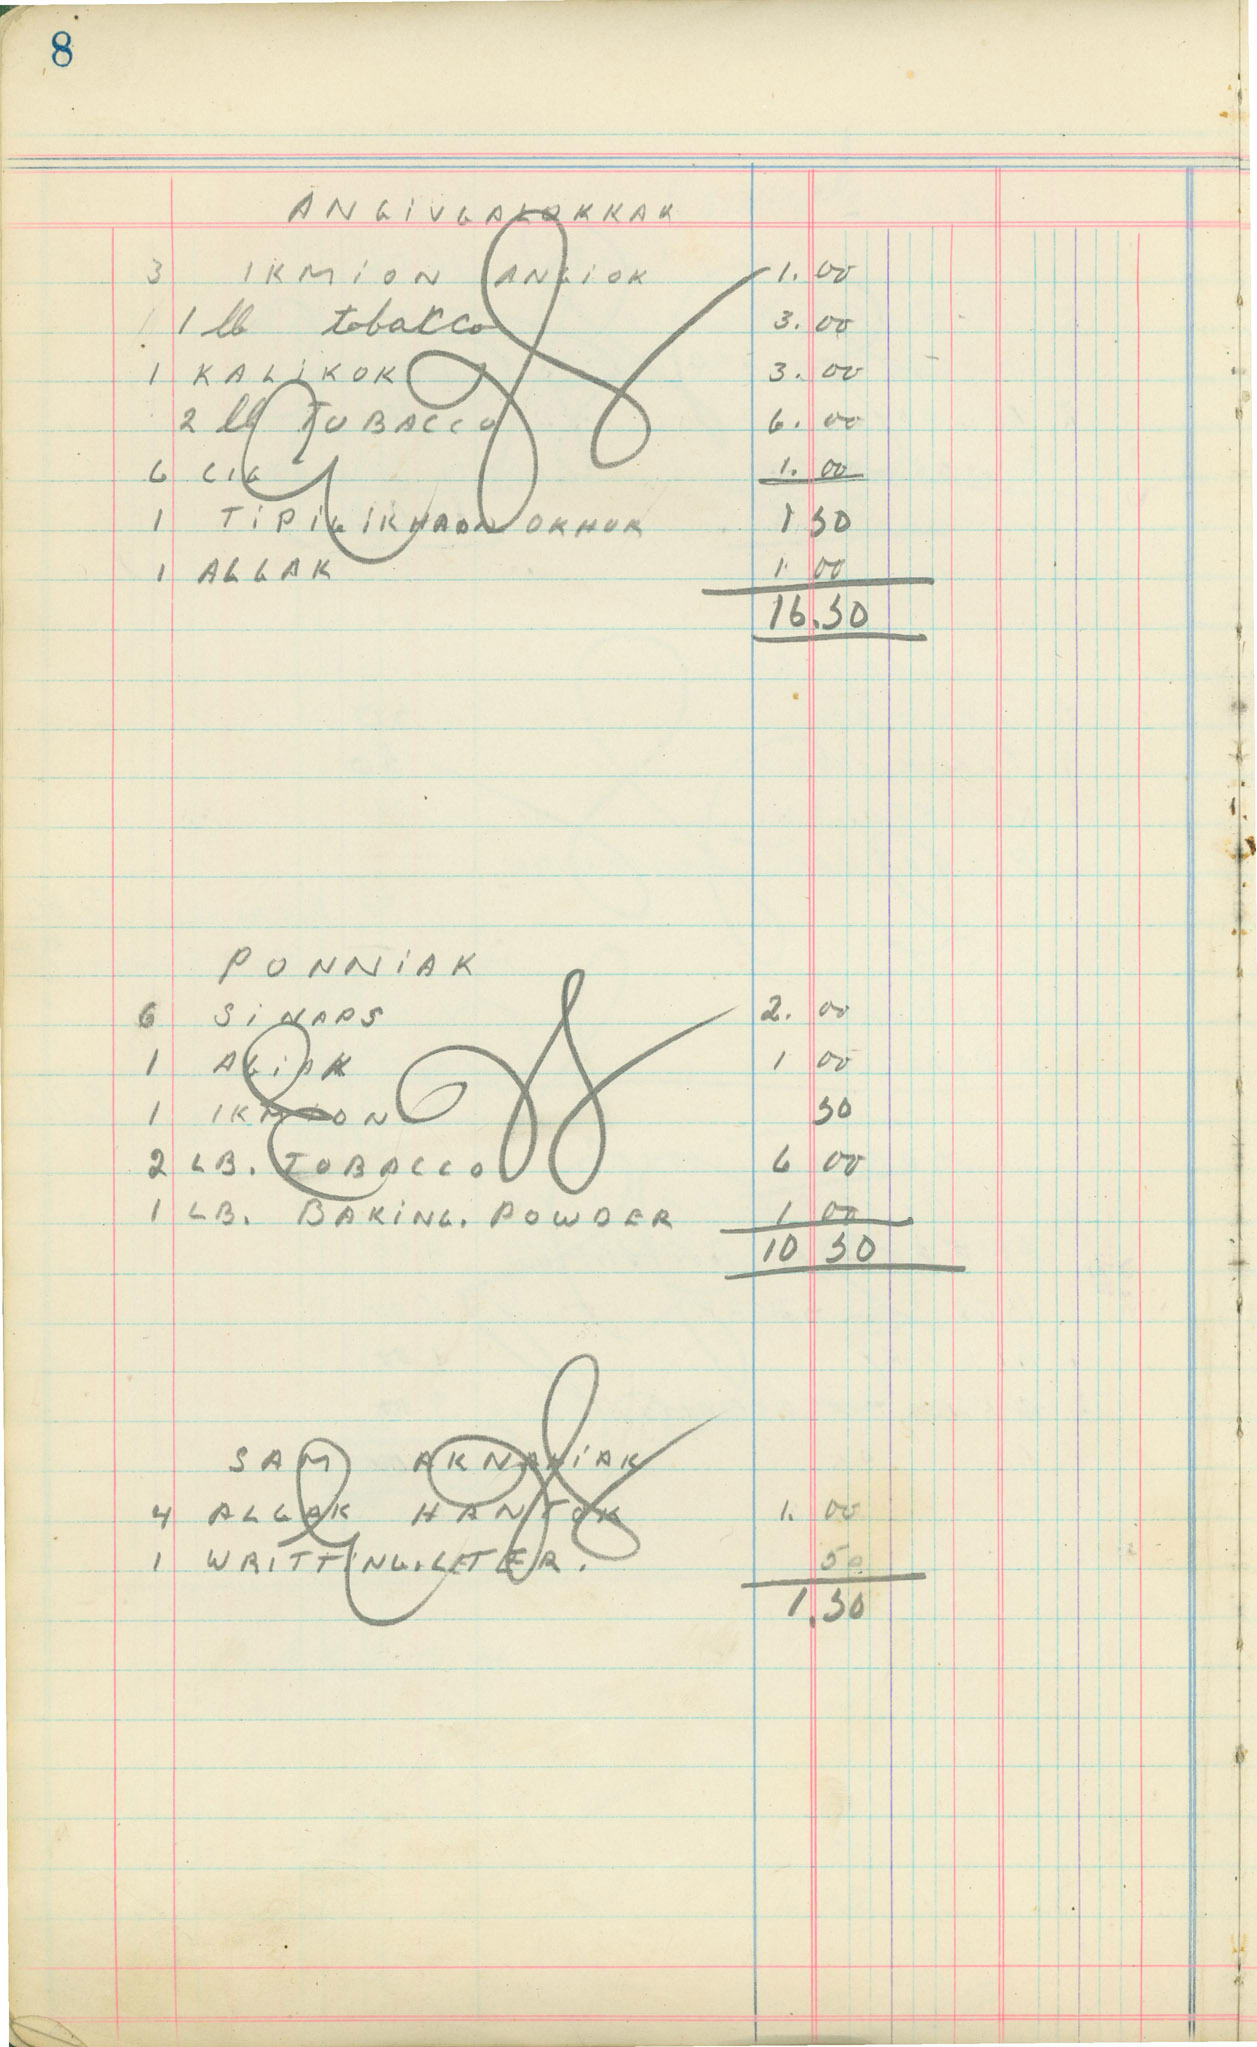 8
ANGIVGALOKKAK
3 IKMiON ANGIOK 1.00
1 lb tobakco 3.00
1 KALiKOK 3.00
2 lb TOBACCO 6.00
6 CIG 1.00
1 1 50
1 ALLAK 1 00
16.50
PONNiAK
6 SiNAPS 2. 00
1 ALiAK 1 00
1 IKMiON 50
2 LB. TOBACCO 6 00
1 LB. BAKiNG. POWDER 1 00
10 50
SAM
4 ALGAK HANTOK 1. 00
1 WRITTiNG.LETER. 50
1.50